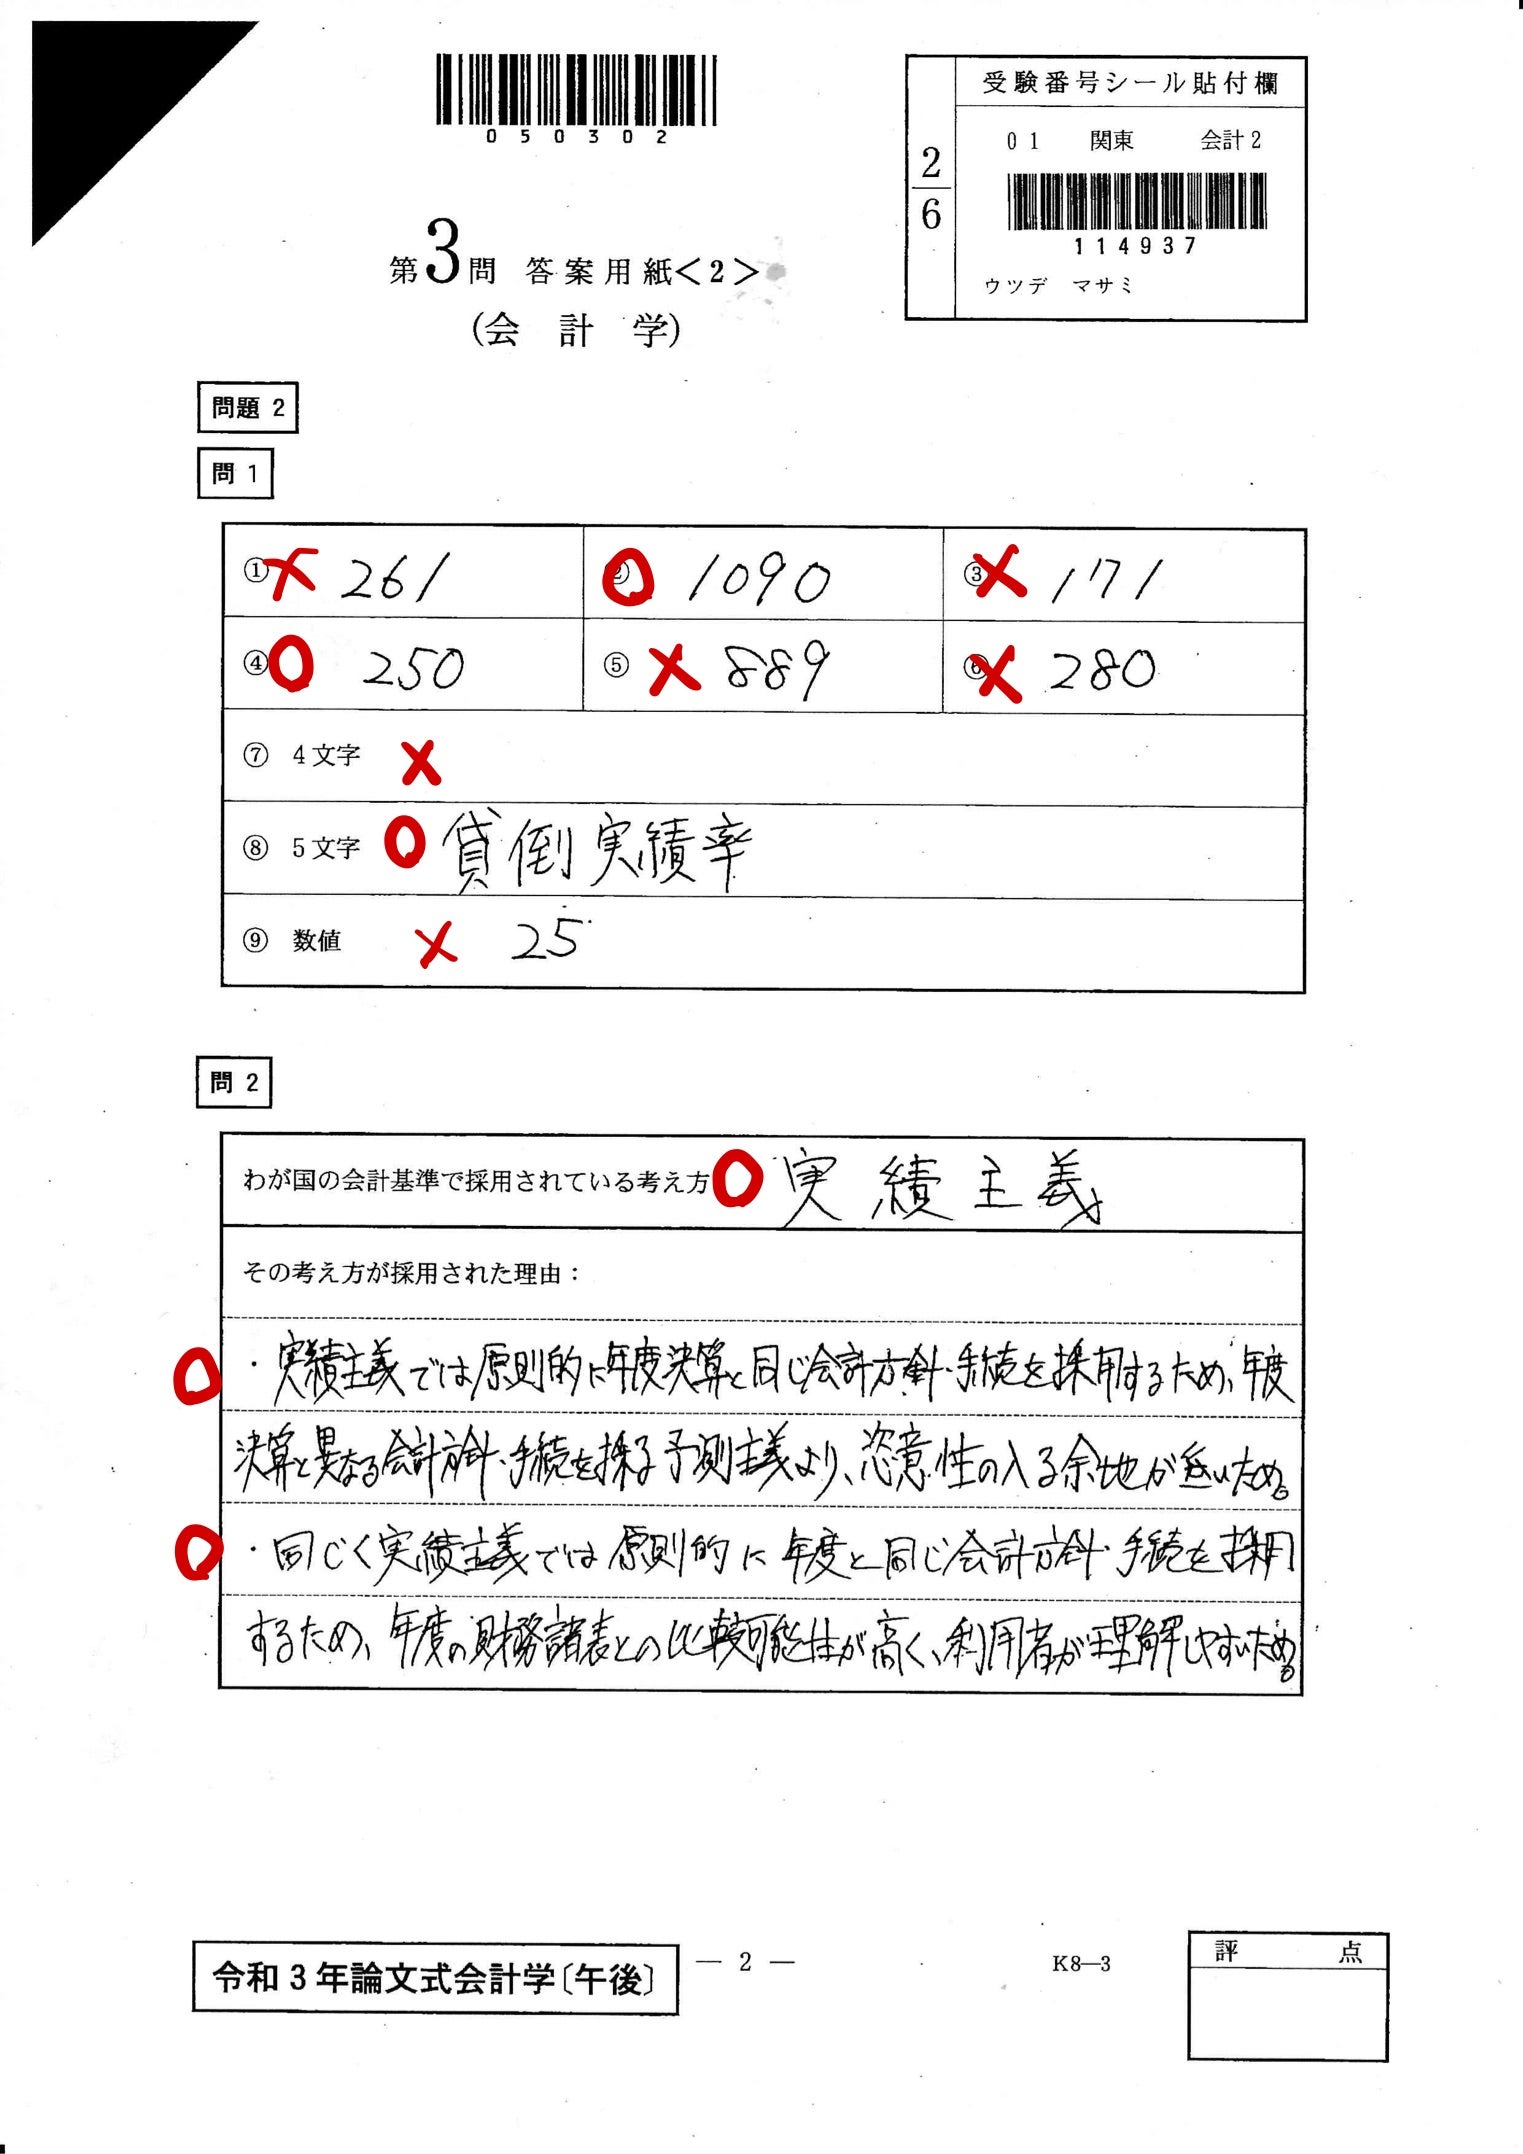 050302
受験番号シール貼付欄
2/6
01 関東 会計2
114937
ウツデ マサミ
第3問 答案用紙<2>
(会計学)
問題 2
問 1
① 261
② 1090
③ 171
④ 250
⑤ 889
⑥ 280
⑦ 4文字
⑧ 5文字 貸倒実績率
⑨ 数値 25
問 2
わが国の会計基準で採用されている考え方 実績主義
その考え方が採用された理由：
・実績主義では原則的に年度決算と同じ会計方針・手続を採用するため、年度
決算と異なる会計方針・手続を採る予測主義より、恣意性の入る余地が低いため。
・同じく実績主義では原則的に年度と同じ会計方針・手続を採用
するため、年度の財務諸表との比較可能性が高く、利用者が理解しやすいため。
令和3年論文式会計学〔午後〕
― 2 ―
K8―3
評点